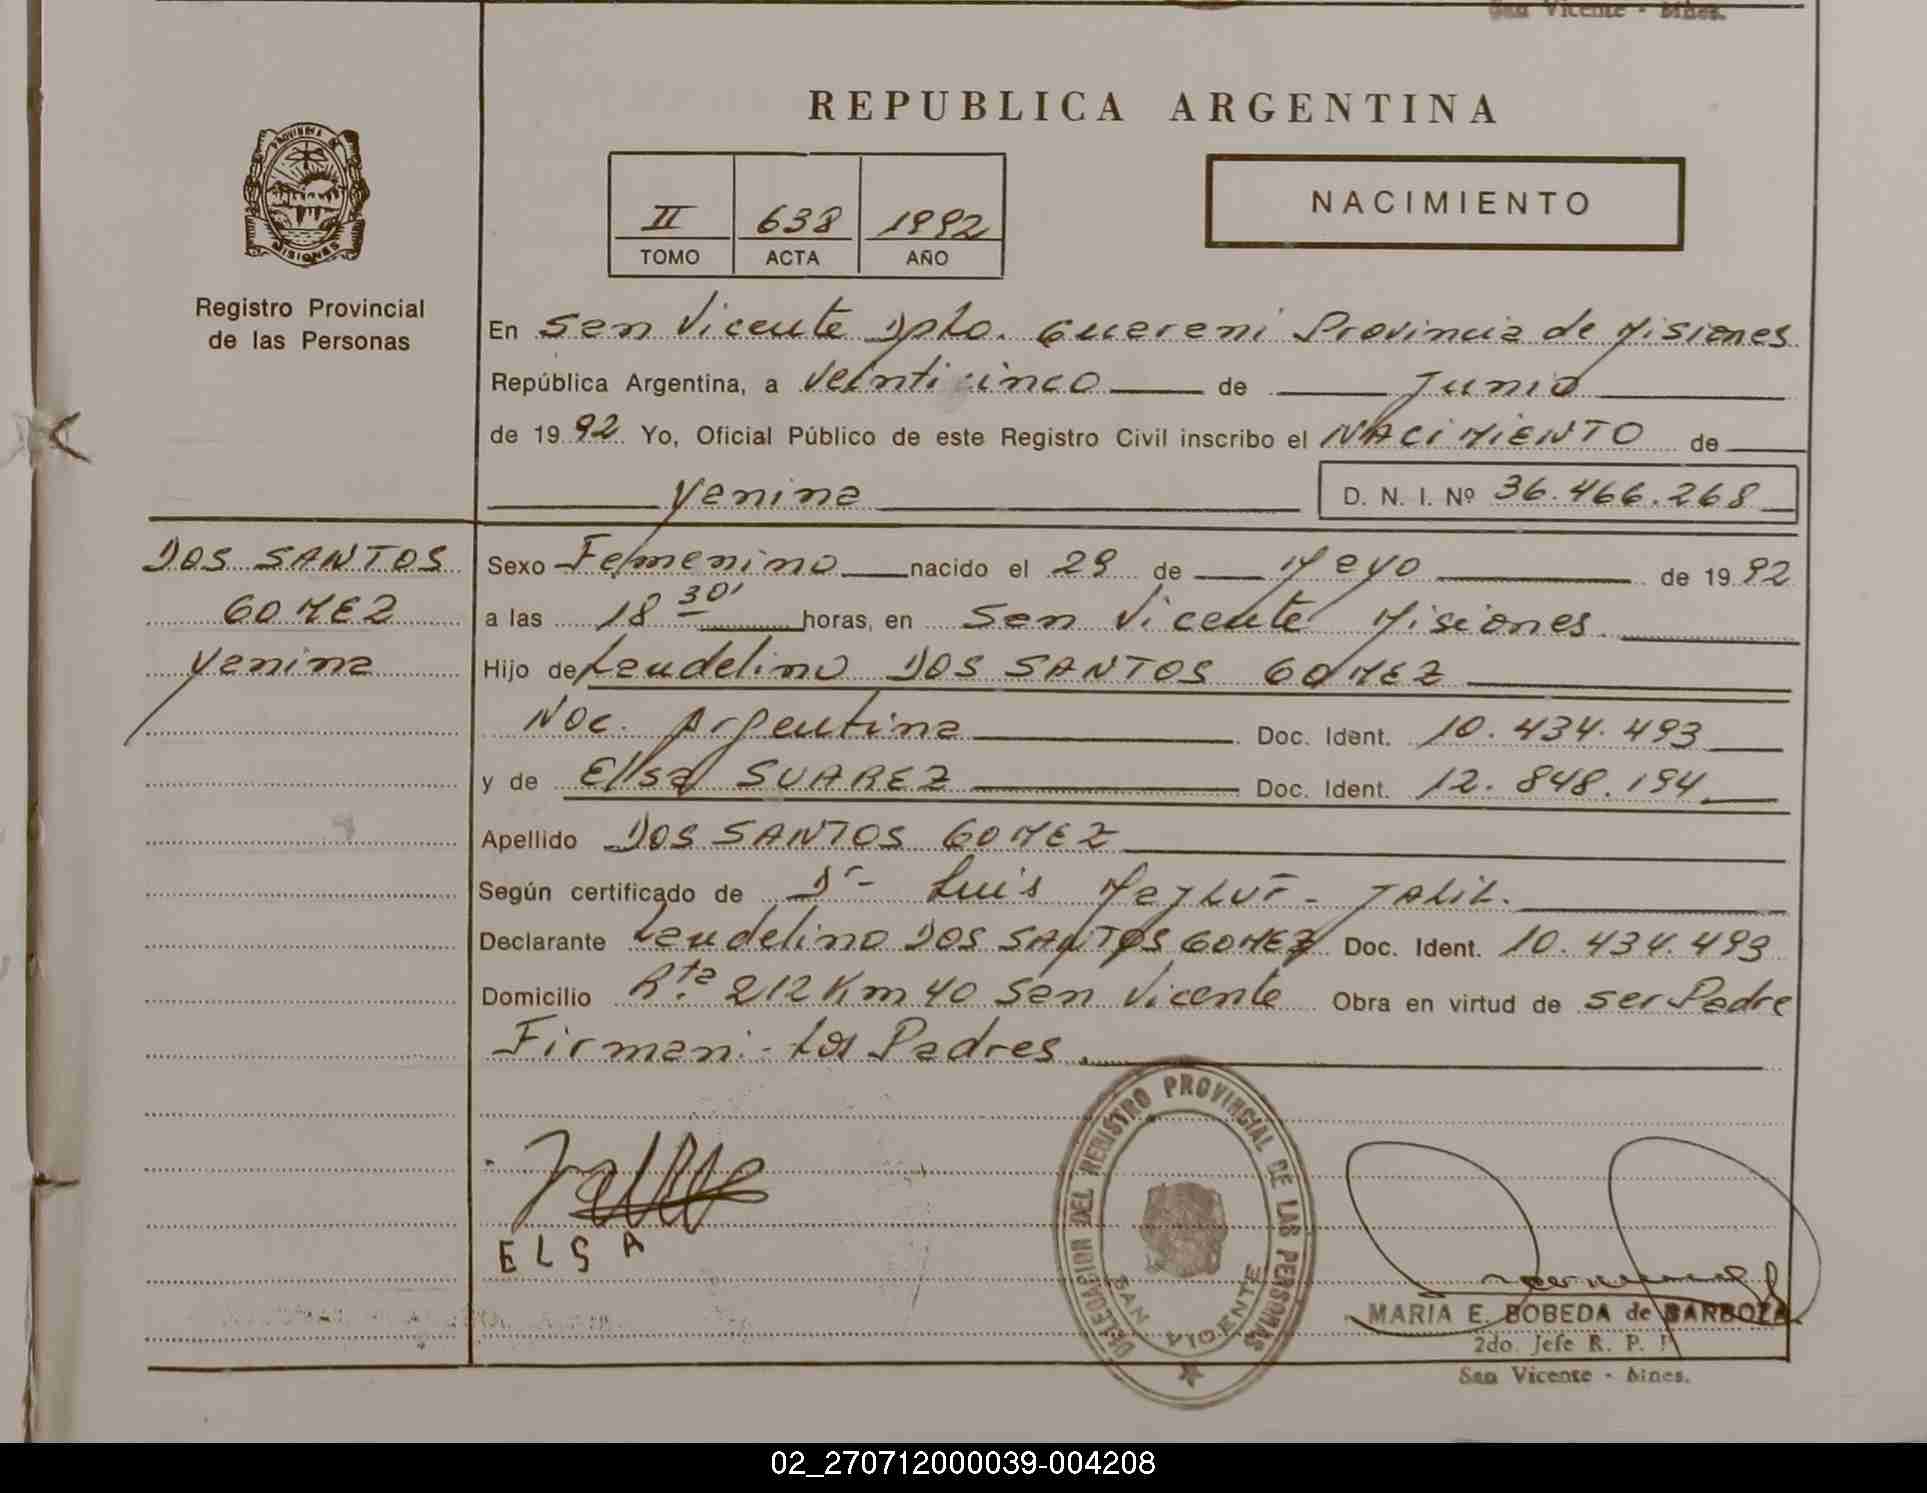 San Vicente - Mnes.
REPUBLICA ARGENTINA
PROVINCIA DE
MISIONES
Registro Provincial
de las Personas
II 638 1992
TOMO ACTA AÑO
NACIMIENTO
En San Vicente Dpto. Guarani Provincia de Misiones
República Argentina, a veinticinco de Junio
de 1992 Yo, Oficial Público de este Registro Civil inscribo el NACIMIENTO de
Yanina D. N. I. Nº 36.466.268
DOS SANTOS
GOMEZ
Yanina
Sexo Femenino nacido el 29 de Mayo de 1992
a las 18 30' horas, en San Vicente Misiones
Hijo de Laudelino DOS SANTOS GOMEZ
Nac. Argentina Doc. Ident. 10.434.493
y de Elsa SUAREZ Doc. Ident. 12.848.194
Apellido DOS SANTOS GOMEZ
Según certificado de Dr- Luis JALIL.
Declarante Laudelino DOS SANTOS GOMEZ Doc. Ident. 10.434.493
Domicilio Rta 212 Km 40 San Vicente Obra en virtud de ser Padre
Firman:- Los Padres.
ELSA
DELEGACION DEL REGISTRO PROVINCIAL DE LAS PERSONAS
SAN VICENTE
MARIA E. BOBEDA de BARBOZA
2do. Jefe R. P. P.
San Vicente - Mnes.
02_270712000039-004208